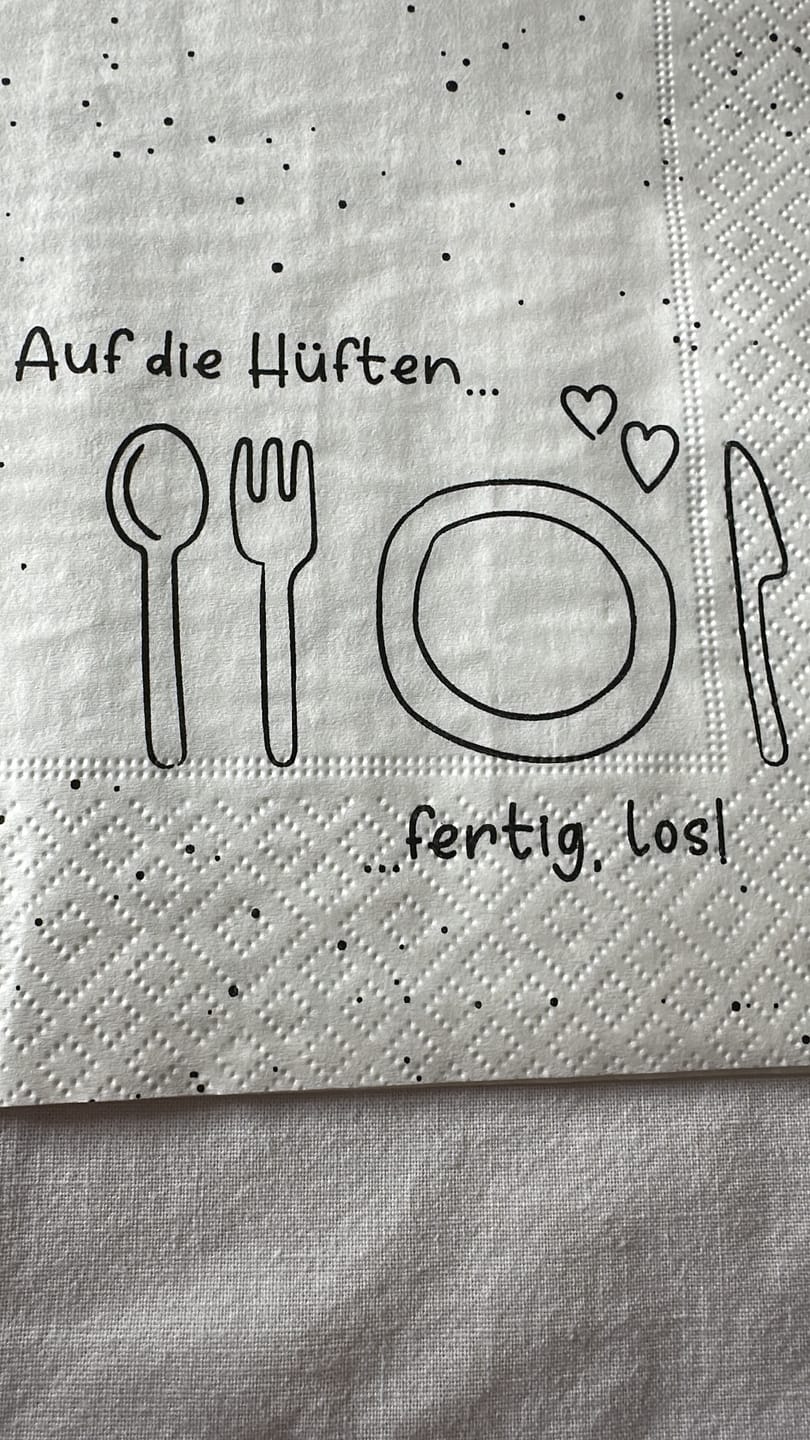 Auf die Hüften...
...fertig, los!